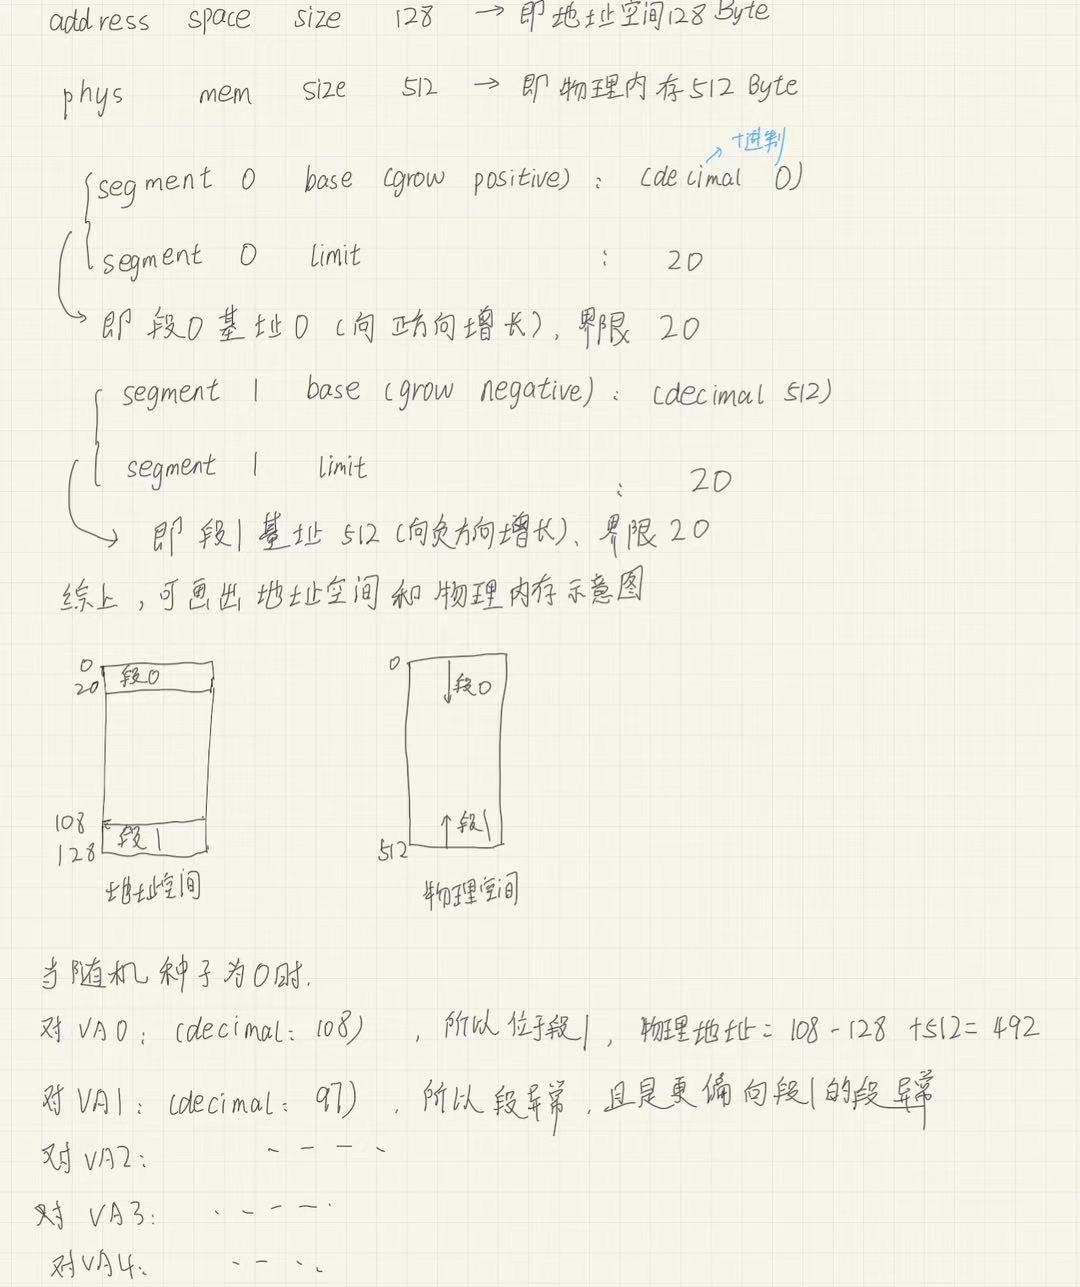 address space size 128 → 即地址空间128 Byte
phys mem size 512 → 即物理内存512 Byte
十进制
segment 0 base (grow positive) : (decimal 0)
segment 0 limit : 20
即段0基址0 (向正方向增长)、界限 20
segment 1 base (grow negative) : (decimal 512)
segment 1 limit : 20
即段1基址 512 (向负方向增长)、界限 20
综上,可画出地址空间和物理内存示意图
0 段0
20
108
段1
128
地址空间
0
段0
段1
512
物理空间
当随机种子为0时.
对 VA0: (decimal: 108) ,所以位于段1, 物理地址= 108-128+512=492
对 VA1: (decimal: 97) ,所以段异常,且是更偏向段1的段异常
对 VA2:
对 VA3:
对VA4: